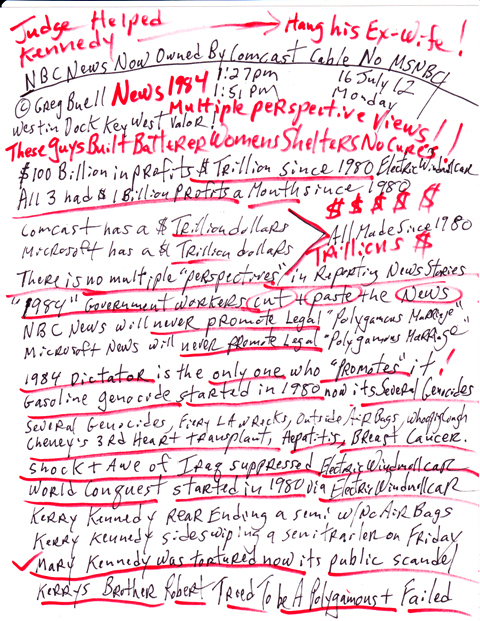 Judge Helped → Hang his Ex-Wife!
Kennedy
NBC News Now Owned By Comcast Cable No MSNBC!
© Greg Buell News 1984 1:27pm 16 July 12
1:51pm Monday
Westin Dock Key West Valor! Multiple Perspective Views!!
These guys Built Batterer Womens Shelters No Cures!
$100 Billion in profits $ Trillion since 1980 Electric Windmill car
All 3 had $1 Billion Profits a Month since 1980
$ $ $ $ $
Comcast has a $ Trillion dollars
All Made Since 1980
Microsoft has a $ Trillion dollars
Trillions $
There is no multiple "perspectives" in Reporting News Stories
"1984" Government workers cut + paste the News
NBC News will never promote Legal "Polygamous Marriage"
Microsoft News will never promote Legal "Polygamous Marriage"
1984 Dictator is the only one who "promotes" it!
Gasoline genocide started in 1980 now its Several Genocides
Several Genocides, Fiery LA Wrecks, Outside Air Bags, Whooping Cough
Cheney's 3rd Heart transplant, Hepatitis, Breast Cancer.
Shock + Awe of Iraq suppressed Electric Windmill car
World Conquest started in 1980 via Electric Windmill car
Kerry Kennedy Rear Ending a semi w/ No Air Bags
Kerry Kennedy sideswiping a semi trailer on Friday
✓ Mary Kennedy was tortured now its public scandel
Kerrys Brother Robert Treed To Be A Polygamoust Failed